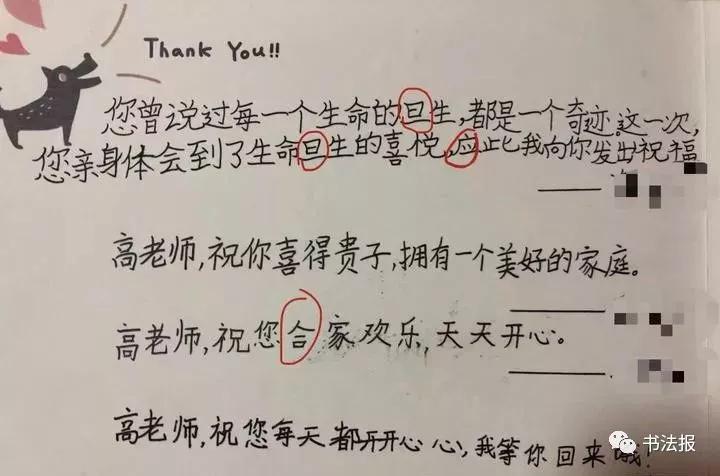 Thank You!!
您曾说过每一个生命的旦生,都是一个奇迹。这一次,
您亲身体会到了生命旦生的喜悦。应此我向你发出祝福
高老师,祝你喜得贵子,拥有一个美好的家庭。
高老师,祝您合家欢乐,天天开心。
高老师,祝您每天都开开心心,我等你回来哦!
书法报